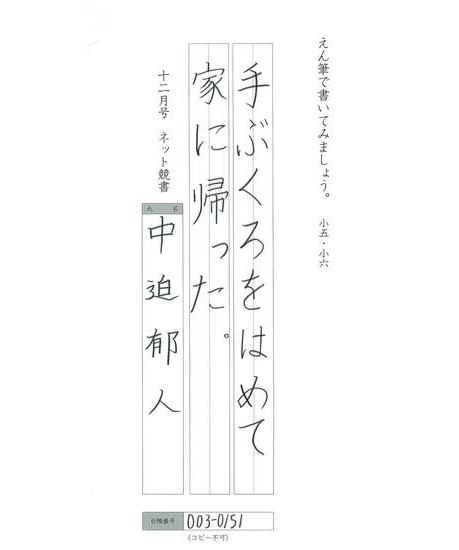 えん筆で書いてみましょう。 小五・小六
手ぶくろをはめて
家に帰った。
十二月号 ネット競書
氏名
中迫郁人
会員番号 003-0151
(コピー不可)